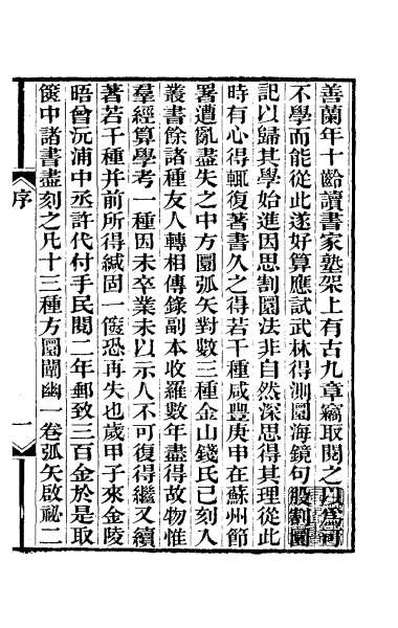 善蘭年十齡讀書家塾架上有古九章竊取閱之以為可
不學而能從此遂好算應試武林得測圜海鏡句股割圜
記以歸其學始進因思割圜法非自然深思得其理從此
時有心得輒復著書久之得若干種咸豐庚申在蘇州節
署遭亂盡失之中方圜弧矢對數三種金山錢氏已刻入
叢書餘諸種友人轉相傳錄副本收羅數年盡得故物惟
羣經算學考一種因未卒業未以示人不可復得繼又續
著若干種并前所得緘固一篋恐再失也歲甲子來金陵
晤曾沅浦中丞許代付手民閱二年郵致三百金於是取
篋中諸書盡刻之凡十三種方圜闡幽一卷弧矢啟祕二
序
一